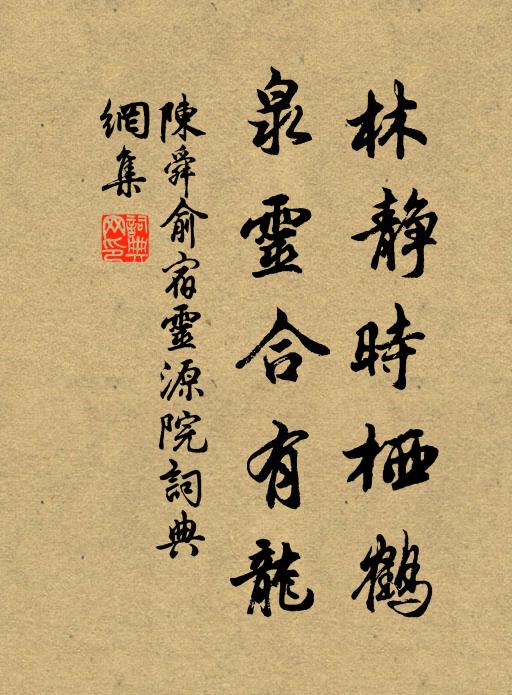 林静時栖鶴
泉靈合有龍
陳舜俞宿靈源院詞典
網集
詞典
网印